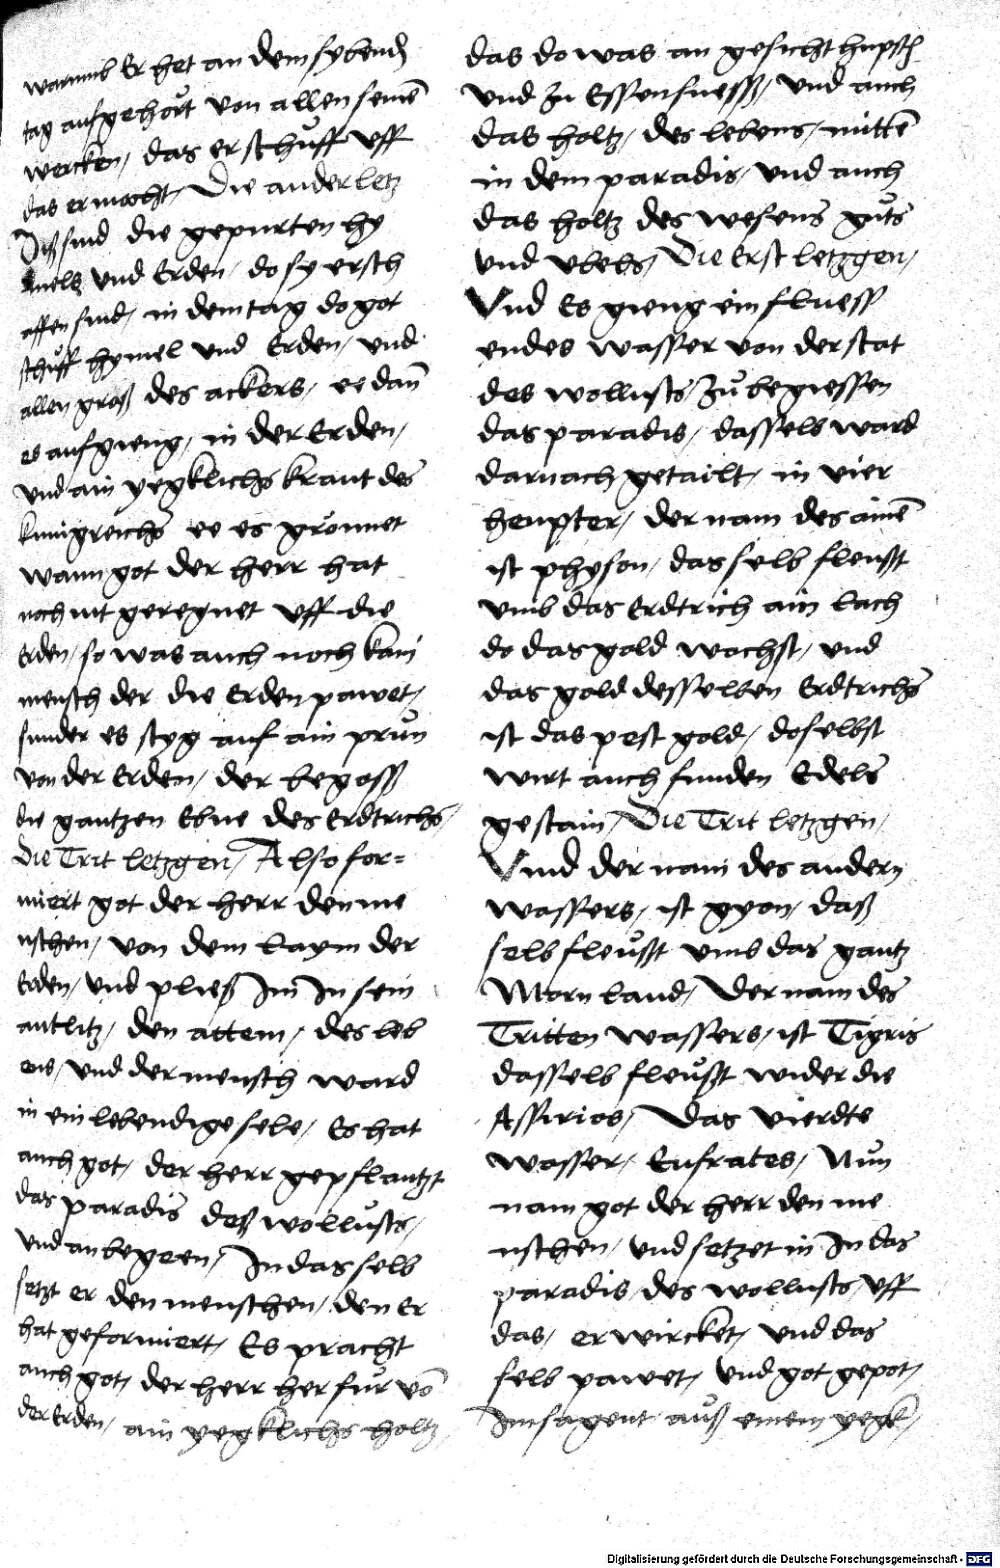 warumb Er het an dem sybendn̄
tag aufgehört von allen seinē
wercken, das er schuͦff vff
das er macht, Die ander letz
Diß sind die gepurten hy
mels vnd Erden, do sy ersch
affen sind, in dem tag do got
schuͦff hymel vnd Erden, vnd
allen groß des ackers, ee dan̄
es aufgieng, in der Erden,
vnd ain yegklichs kraut des
kunigreichs ee es gronnet
wann got der herr hat
noch nit geregnet vff die
Erden, so was auch noch kain
mensch der die Erden pawet,
sunder es styg auf ain prun
von der Erden, der begoss
die gantzen Ebne des Erdtrichs,
Die Trit letzgen, Also for=
miert got der herr den me
nschen, von dem laym der
Erden, vnd pließ Im In sein
antlitz, den attem, des leb
ens, vnd der mensch ward
in ein lebendige sele, Es hat
auch got, der herr gepflantzt
das paradis deß wollusts,
vnd anbegeen, In das selb
setzt er den menschen, den Er
hat geformiert, Es pracht
auch got, der herr her fur vō
der Erden, ain yegklichs holtz,
das do was an gesicht hupsch
vnd zu Essen suess, vnd auch
das holtz, des lebens, mittē
in dem paradis, vnd auch
das holtz des wesens guͦts
vnd vbels, Die Erst letzgen,
Vnd Es gieng ein fluess
endes wasser von der stat
des wollusts, zuͦ begiessen
das paradis, dasselb ward
darnach getailt, in vier
heupter, der nam des ainē
ist physon, das selb fleusst
vmb das Erdtrich ain lach
do das gold wachst, vnd
das gold desselben Erdtrichs
ist das pest gold, doselbst
wirt auch funden Edels
gestain, Die Trit letzgen,
Vnnd der nam des andern
wassers, ist gyon, daß
selb fleusst vmb das gantz
Morn land, Der nam des
Tritten wassers, ist Tigris
dasselb fleußt wider die
Assirios, Das vierdte
wasser, Eufrates, Nun
nam got der herr den me
nschen, vnd setzet in In das
paradis, des wollusts, vff
das, er wircket, vnd das
selb pawet, vnd got gepot,
Im sagent auß einem yegk,
Digitalisierung gefördert durch die Deutsche Forschungsgemeinschaft - DFG